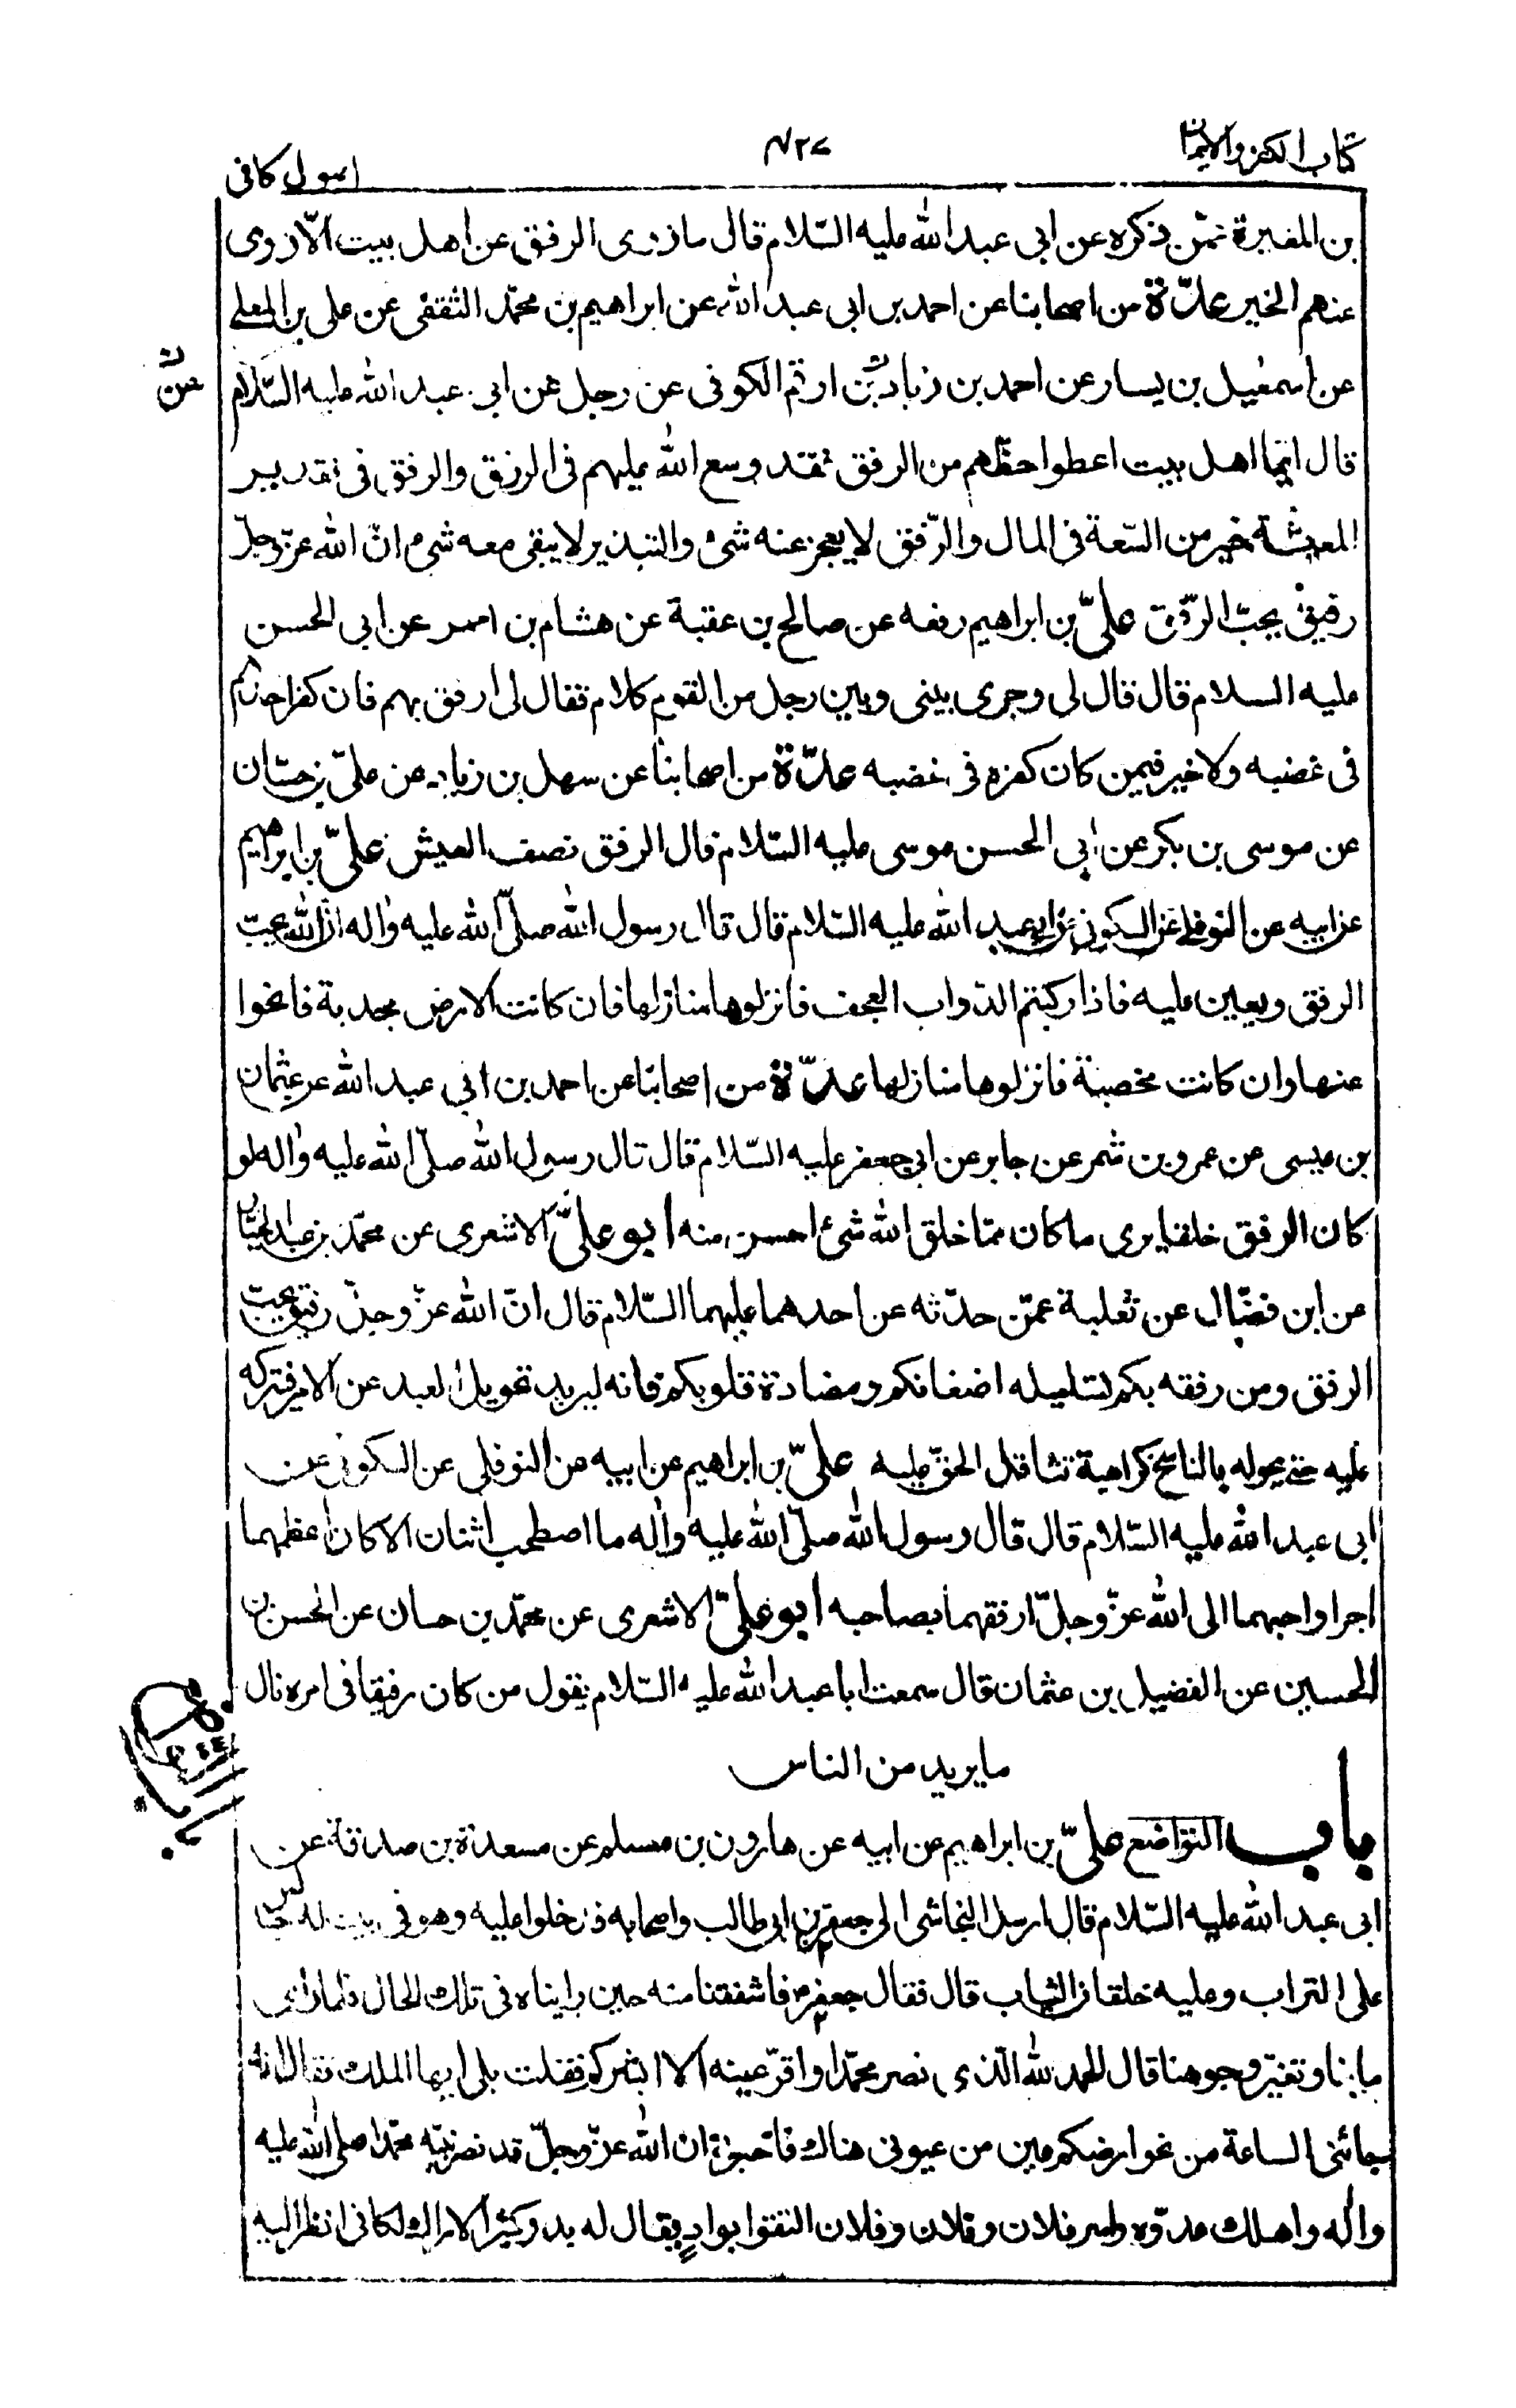 كتاب الكفر والايمان
٤٢٧
اصول كافى
بن المغيرة عمّن ذكره عن ابى عبد الله عليه السّلام قال ما زوى الرفق عن اهل بيت الّا زوى
عنهم الخير عدّة من اصحابنا عن احمد بن ابى عبد الله عن ابراهيم بن محمّد الثقفى عن على بن المعلى
عن اسمعيل بن يسار عن احمد بن زياد بن ارقم الكوفى عن رجل عن ابى عبد الله عليه السّلام
عن
قال ايّما اهل بيت اعطوا حظّهم من الرفق فقد وسع الله عليهم فى الرزق والرفق فى تقدير
المعيشة خير من السّعة فى المال والرّفق لا يعجز عنه شئ والتبذير لا يبقى معه شئ انّ الله عزّ وجلّ
رفيق يحبّ الرّفق علىّ بن ابراهيم رفعه عن صالح بن عقبة عن هشام بن احمر عن ابى الحسن
عليه السلام قال قال لى وجرى بينى وبين رجل من القوم كلام فقال لى ارفق بهم فان كفر احدكم
فى غضبه ولا خير فيمن كان كفره فى غضبه عدّة من اصحابنا عن سهل بن زياد عن علىّ بن حسّان
عن موسى بن بكر عن ابى الحسن موسى عليه السّلام قال الرفق نصف العيش علىّ بن ابراهيم
عن ابيه عن النوفلى عن السكونى عن ابى عبد الله عليه السّلام قال قال رسول الله صلّى الله عليه واله انّ الله يحبّ
الرفق ويعين عليه فاذا ركبتم الدّواب العجف فانزلوها منازلها فان كانت الارض مجدبة فانجوا
عنها وان كانت مخصبة فانزلوها منازلها عدّة من اصحابنا عن احمد بن ابى عبد الله عن عثمان
بن عيسى عن عمرو بن شمر عن جابر عن ابى جعفر عليه السّلام قال قال رسول الله صلّى الله عليه واله لو
كان الرفق خلقا يرى ما كان ممّا خلق الله شئ احسن منه ابو علىّ الاشعرى عن محمّد بن عبد الجبّار
عن ابن فضّال عن ثعلبة عمّن حدّثه عن احدهما عليهما السّلام قال انّ الله عزّ وجلّ رفيق يحبّ
الرفق ومن رفقه بكم تسليله اضغانكم ومضادة قلوبكم وانه ليريد تحويل العبد عن الامر فيتركه
عليه حتى يحوله بالناسخ كراهية تثاقل الحقّ عليه علىّ بن ابراهيم عن ابيه عن النوفلى عن السكونى عن
ابى عبد الله عليه السّلام قال قال رسول الله صلّى الله عليه واله ما اصطحب اثنان الا كان اعظمهما
اجرا واحبهما الى الله عزّ وجلّ ارفقهما بصاحبه ابو علىّ الاشعرى عن محمّد بن حسان عن الحسن بن
الحسين عن الفضيل بن عثمان قال سمعت ابا عبد الله عليه السّلام يقول من كان رفيقا فى امره نال
ما يريد من الناس
باب التواضع علىّ بن ابراهيم عن ابيه عن هارون بن مسلم عن مسعدة بن صدقة عن
ابى عبد الله عليه السّلام قال ارسل النجاشى الى جعفر بن ابى طالب واصحابه فدخلوا عليه وهو فى بيت له جالس
على التراب وعليه خلقان الثياب قال فقال جعفر فاشفقنا منه حين رايناه فى تلك الحال فلما راى
ما بنا وتغيّر وجوهنا قال الحمد لله الّذى نصر محمّدا واقرّ عينه الا ابشركم فقلت بلى ايها الملك فقال انه
جائنى الساعة من نحو ارضكم عين من عيونى هناك فاخبرنى ان الله عزّ وجلّ قد نصر نبيّه محمّدا صلى الله عليه
واله واهلك عدوّه واسر فلان وفلان وفلان التقوا بوادٍ يقال له بدر كثير الاراك لكانى انظر اليه